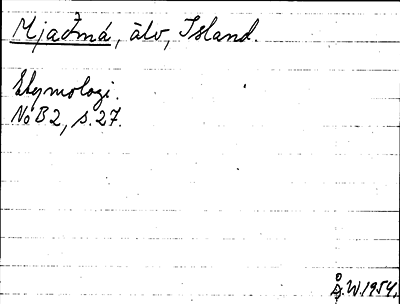 Mjaðmá, älv, Island.
Etymologi.
NoB 2, s. 27.
Å.W. 1954.